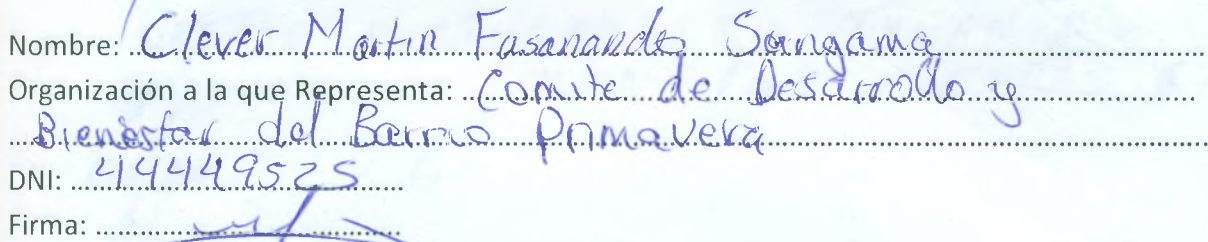 Nombre: Clever Martin Fasanando Sangama
Organización a la que Representa: Comite de Desarrollo y
Bienestar del Barrio Primavera
DNI: 44449525
Firma: